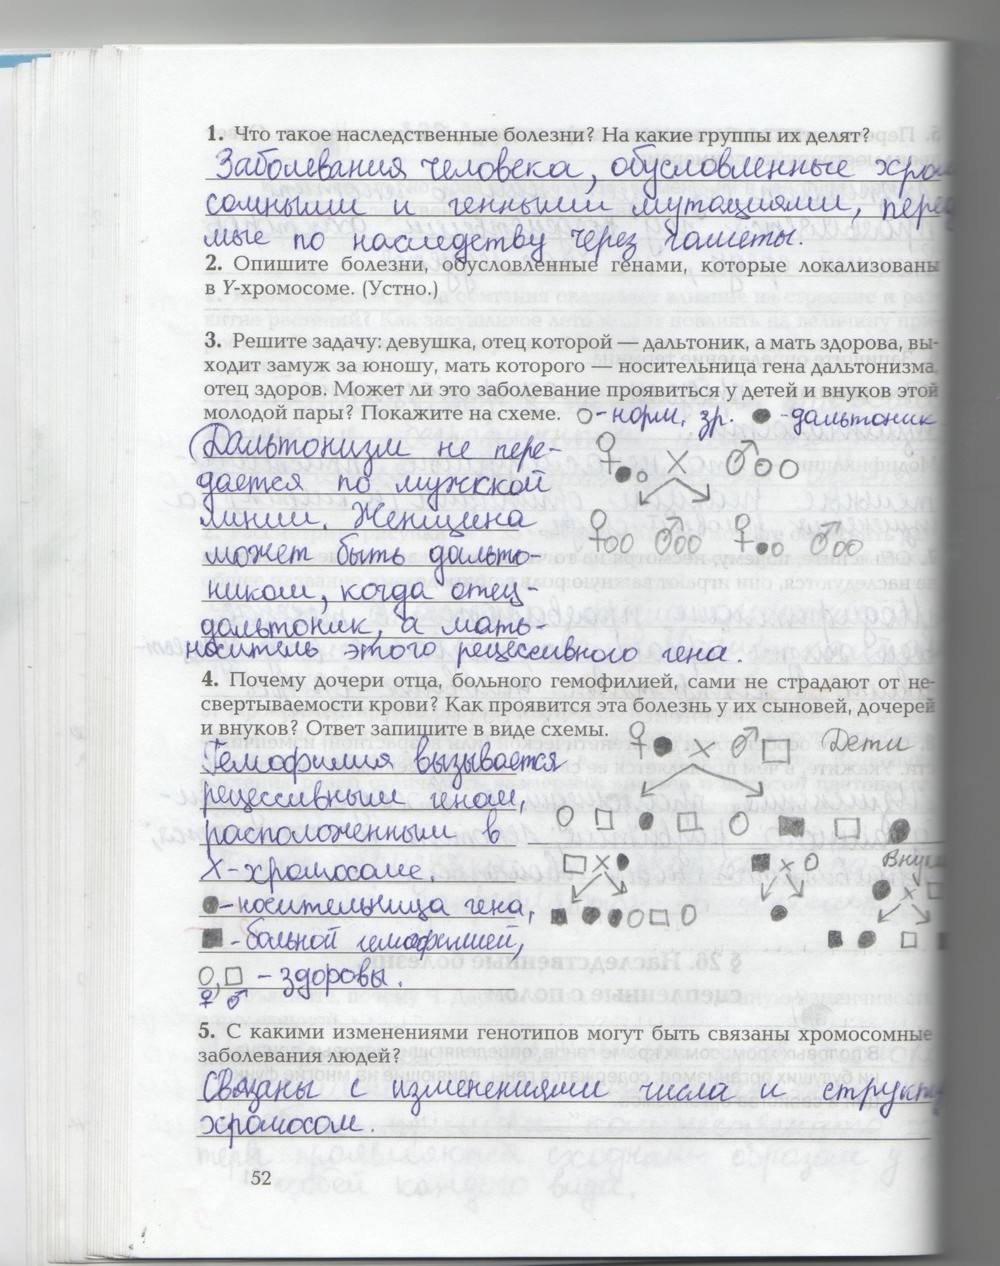 1. Что такое наследственные болезни? На какие группы их делят?
Заболевания человека, обусловленные хром
сомными и генными мутациями, перед
мые по наследству через гаметы.
2. Опишите болезни, обусловленные генами, которые локализованы
в Y-хромосоме. (Устно.)
3. Решите задачу: девушка, отец которой — дальтоник, а мать здорова, вы-
ходит замуж за юношу, мать которого — носительница гена дальтонизма,
отец здоров. Может ли это заболевание проявиться у детей и внуков этой
молодой пары? Покажите на схеме. ○-норм. зр. ●-дальтоник
Дальтонизм не пере-
дается по мужской
линии. Женщина
может быть дальто-
ником, когда отец-
дальтоник, а мать-
носитель этого рецессивного гена.
♀●○ × ♂○○
♀○○ ♂○○ ♀●○ ♂○○
4. Почему дочери отца, больного гемофилией, сами не страдают от не-
свертываемости крови? Как проявится эта болезнь у их сыновей, дочерей
и внуков? Ответ запишите в виде схемы.
♀● × ♂□ Дети
Гемофилия вызывается
рецессивным геном,
расположенным в
X-хромосоме.
●-носительница гена,
■-больной гемофилией,
○,□ - здоровы.
♀ ♂
○ □ ● □ ○ ■ □ ●
□×● ■×○ Внуки
●×□
■ ● ● ○ □ ○ ●
■ ● □ ■
5. С какими изменениями генотипов могут быть связаны хромосомные
заболевания людей?
Связаны с изменениями числа и структу
хромосом.
52